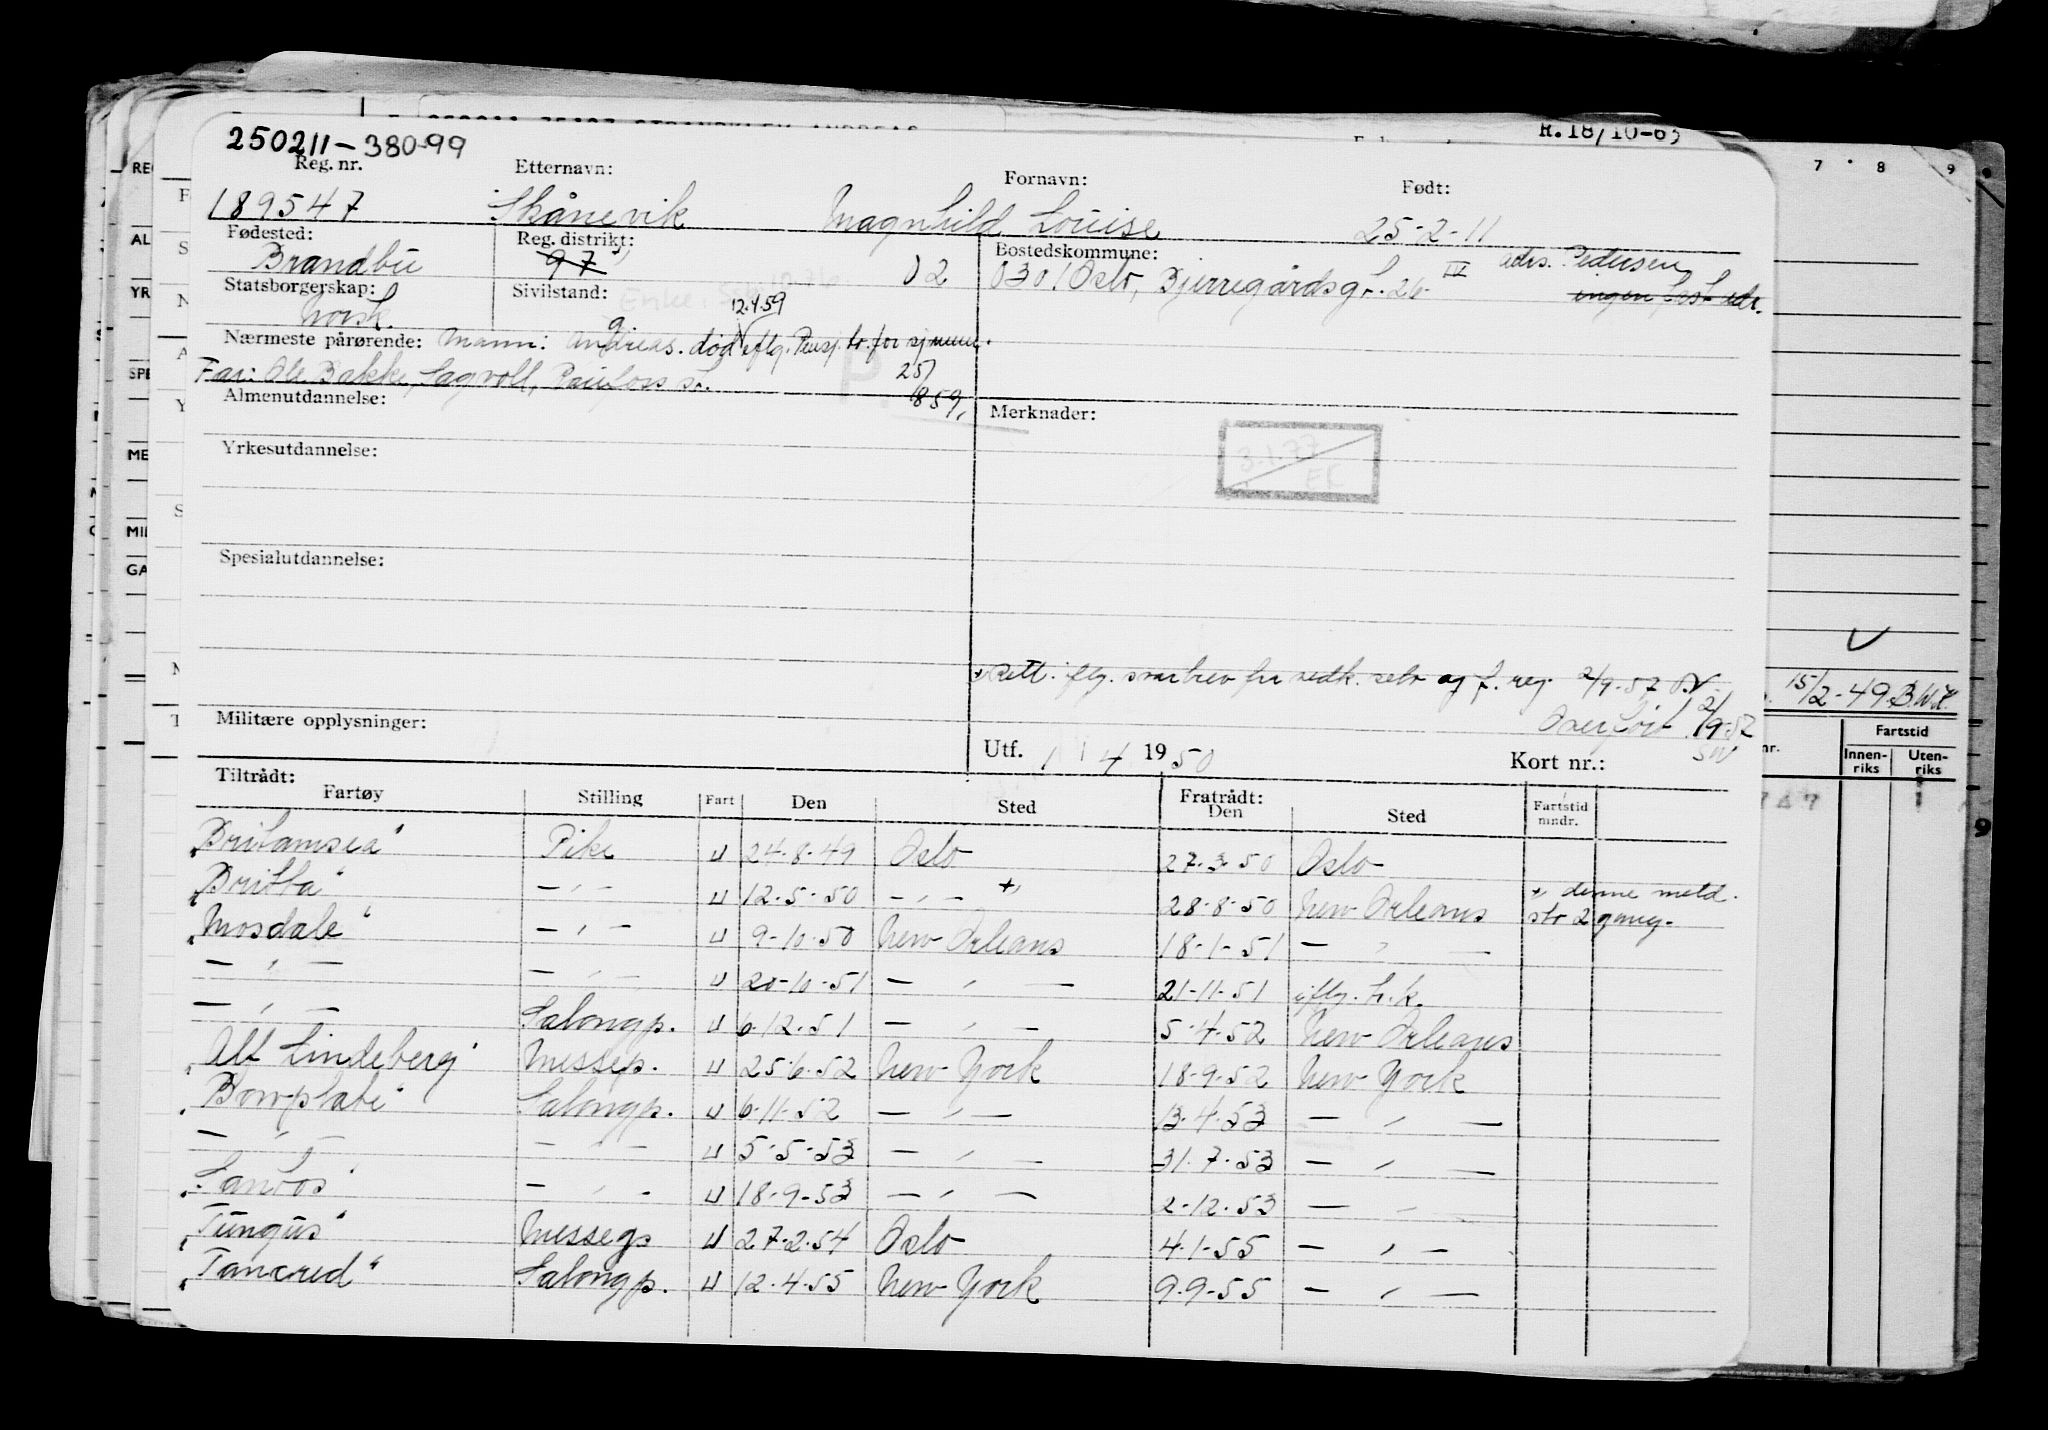 R.18/10-63
250211-38099
Reg. nr. Etternavn: Fornavn: Født:
189547 Skånevik Magnhild Louise 25-2-11
Fødested: Reg. distrikt: Bostedskommune:
Brandbu 97 02 0301 Oslo, Bjerregårdsgt. 26 IV adrs. Pedersen
Statsborgerskap: Sivilstand: ingen fast adr.
Norsk. Enke. 12.4.59
Nærmeste pårørende: Mann: Andreas. død iflg. Pensj. tr. for sjømenn.
Far: Ole Bakke, Sagvoll, Raufoss st. 25/
859.
Almenutdannelse: Merknader:
3.1.77
EK
Yrkesutdannelse:
Spesialutdannelse:
Rett. iflg. svarbrev fra vedk. selv og f. reg. 2/9-57
Militære opplysninger: Overført 2/9-57
Utf. 1 / 4 1950 Kort nr.:
Tiltrådt: Fratrådt:
Fartøy Stilling Fart Den Sted Den Sted Fartstid mndr.
"Britamsea" Pike U 24-8-49 Oslo 27.3.50 Oslo
"Britta" -"- U 12-5-50 -"- + 28-8-50 New Orleans + denne meld.
"Mosdale" -"- U 9-10-50 New Orleans 18-1-51 -"- str 2 gang.
-"- -"- U 20-10-51 -"- 21-11-51 iflg. h.k.
-"- Salongp. U 6.12.51 -"- 5-4-52 New Orleans
"Alf Lindeberg" Messep. U 25.6.52 New York 18-9-52 New York
"Bowplate" Salongp. U 6.11.52 -"- 13-4-53 -"-
-"- -"- U 5-5-53 -"- 31.7.53 -"-
"Sanfos" -"- U 18-9-53 -"- 2-12-53 -"-
"Tungus" Messegs U 27-2-54 Oslo 4.1-55 -"-
"Tancred" Salongp. U 12.4.55 New York 9.9-55 -"-
15/2-49 B.W.H.
Fartstid
Innen-
riks
Uten-
riks
7 8 9